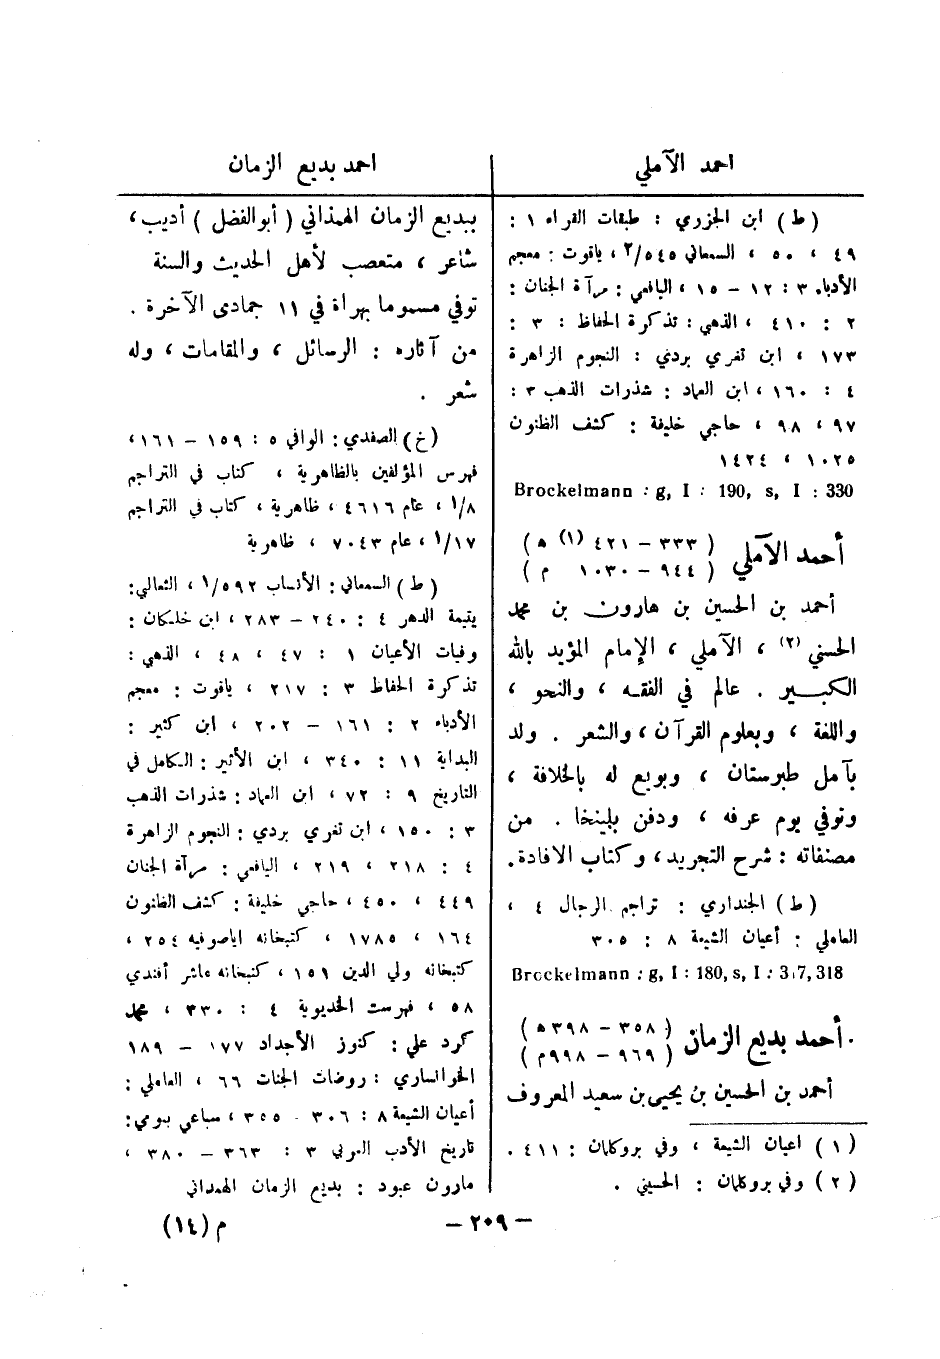 احمد الآملي
(ط) ابن الجزري : طبقات القراء ١ :
٤٩ ، ٥٠ ، السمعاني ٢/٥٤٥ ، ياقوت : معجم
الأدباء ٣ : ١٢ – ١٥ ، اليافعي : مرآة الجنان :
٢ : ٤١٠ ، الذهبي : تذكرة الحفاظ : ٣ :
١٧٣ ، ابن تغري بردي : النجوم الزاهرة
٤ : ١٦٠ ، ابن العماد : شذرات الذهب ٣ :
٩٧ ، ٩٨ ، حاجي خليفة : كشف الظنون
١٠٢٥ ، ١٤٢٤
Brockelmann : g, I : 190, s, I : 330
أحمد الآملي ( ٣٣٣ – ٤٢١ (١) ه )
( ٩٤٤ – ١٠٣٠ م )
أحمد بن الحسين بن هارون بن محمد
الحسني (٢) ، الآملي ، الإمام المؤيد بالله
الكبير . عالم في الفقه ، والنحو ،
واللغة ، وبعلوم القرآن ، والشعر . ولد
بآمل طبرستان ، وبويع له بالخلافة ،
وتوفي يوم عرفه ، ودفن بلينخا . من
مصنفاته : شرح التجريد ، وكتاب الافادة .
(ط) الجنداري : تراجم الرجال ٤ ،
العاملي : أعيان الشيعة ٨ : ٣٠٥
Brockelmann : g, I : 180, s, I : 317, 318
أحمد بديع الزمان ( ٣٥٨ – ٣٩٨ ه )
( ٩٦٩ – ٩٩٨م )
أحمد بن الحسين بن يحيى بن سعيد المعروف
(١) اعيان الشيعة ، وفي بروكلمان : ٤١١ .
(٢) وفي بروكلمان : الحسيني .
احمد بديع الزمان
ببديع الزمان الهمذاني ( أبو الفضل ) أديب ،
شاعر ، متعصب لأهل الحديث والسنة
توفي مسموما بهراة في ١١ جمادى الآخرة .
من آثاره : الرسائل ، والمقامات ، وله
شعر .
(خ) الصفدي : الوافي ٥ : ١٥٩ – ١٦١ ،
فهرس المؤلفين بالظاهرية ، كتاب في التراجم
١/٨ ، عام ٤٦١٦ ، ظاهرية ، كتاب في التراجم
١/١٧ ، عام ٧٠٤٣ ، ظاهرية
(ط) السمعاني : الأنساب ١/٥٩٢ ، الثعالبي :
يتيمة الدهر ٤ : ٢٤٠ – ٢٨٣ ، ابن خلكان :
وفيات الأعيان ١ : ٤٧ ، ٤٨ ، الذهبي :
تذكرة الحفاظ ٣ : ٢١٧ ، ياقوت : معجم
الأدباء ٢ : ١٦١ – ٢٠٢ ، ابن كثير :
البداية ١١ : ٣٤٠ ، ابن الأثير : الكامل في
التاريخ ٩ : ٧٢ ، ابن العماد : شذرات الذهب
٣ : ١٥٠ ، ابن تغري بردي : النجوم الزاهرة
٤ : ٢١٨ ، ٢١٩ ، اليافعي : مرآة الجنان
٤٤٩ ، ٤٥٠ ، حاجي خليفة : كشف الظنون
١٦٤ ، ١٧٨٥ ، كتبخانه اياصوفيه ٢٥٤ ،
كتبخانه ولي الدين ١٥١ ، كتبخانه عاشر أفندي
٥٨ ، فهرست الخديوية ٤ : ٣٣٠ ، محمد
كرد علي : كنوز الأجداد ١٧٧ – ١٨٩
الخوانساري : روضات الجنات ٦٦ ، العاملي :
أعيان الشيعة ٨ : ٣٠٦ – ٣٥٥ ، سباعي بيومي :
تاريخ الأدب العربي ٣ : ٣٦٣ – ٣٨٠ ،
مارون عبود : بديع الزمان الهمداني
– ٢٠٩ –
م (١٤)